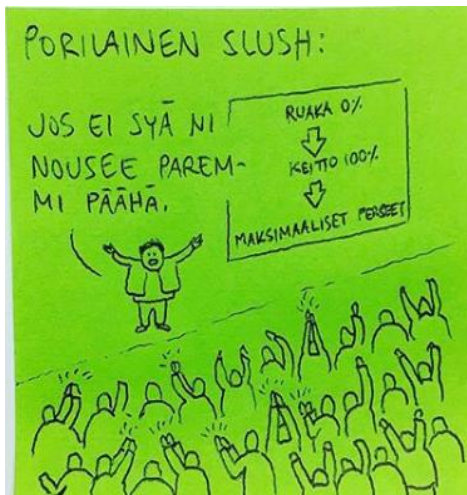 PORILAINEN SLUSH:
JOS EI SYÄ NI
NOUSEE PAREM-
MI PÄÄHÄ.
RUAKA 0%
KEITTO 100%
MAKSIMAALISET PERSEET